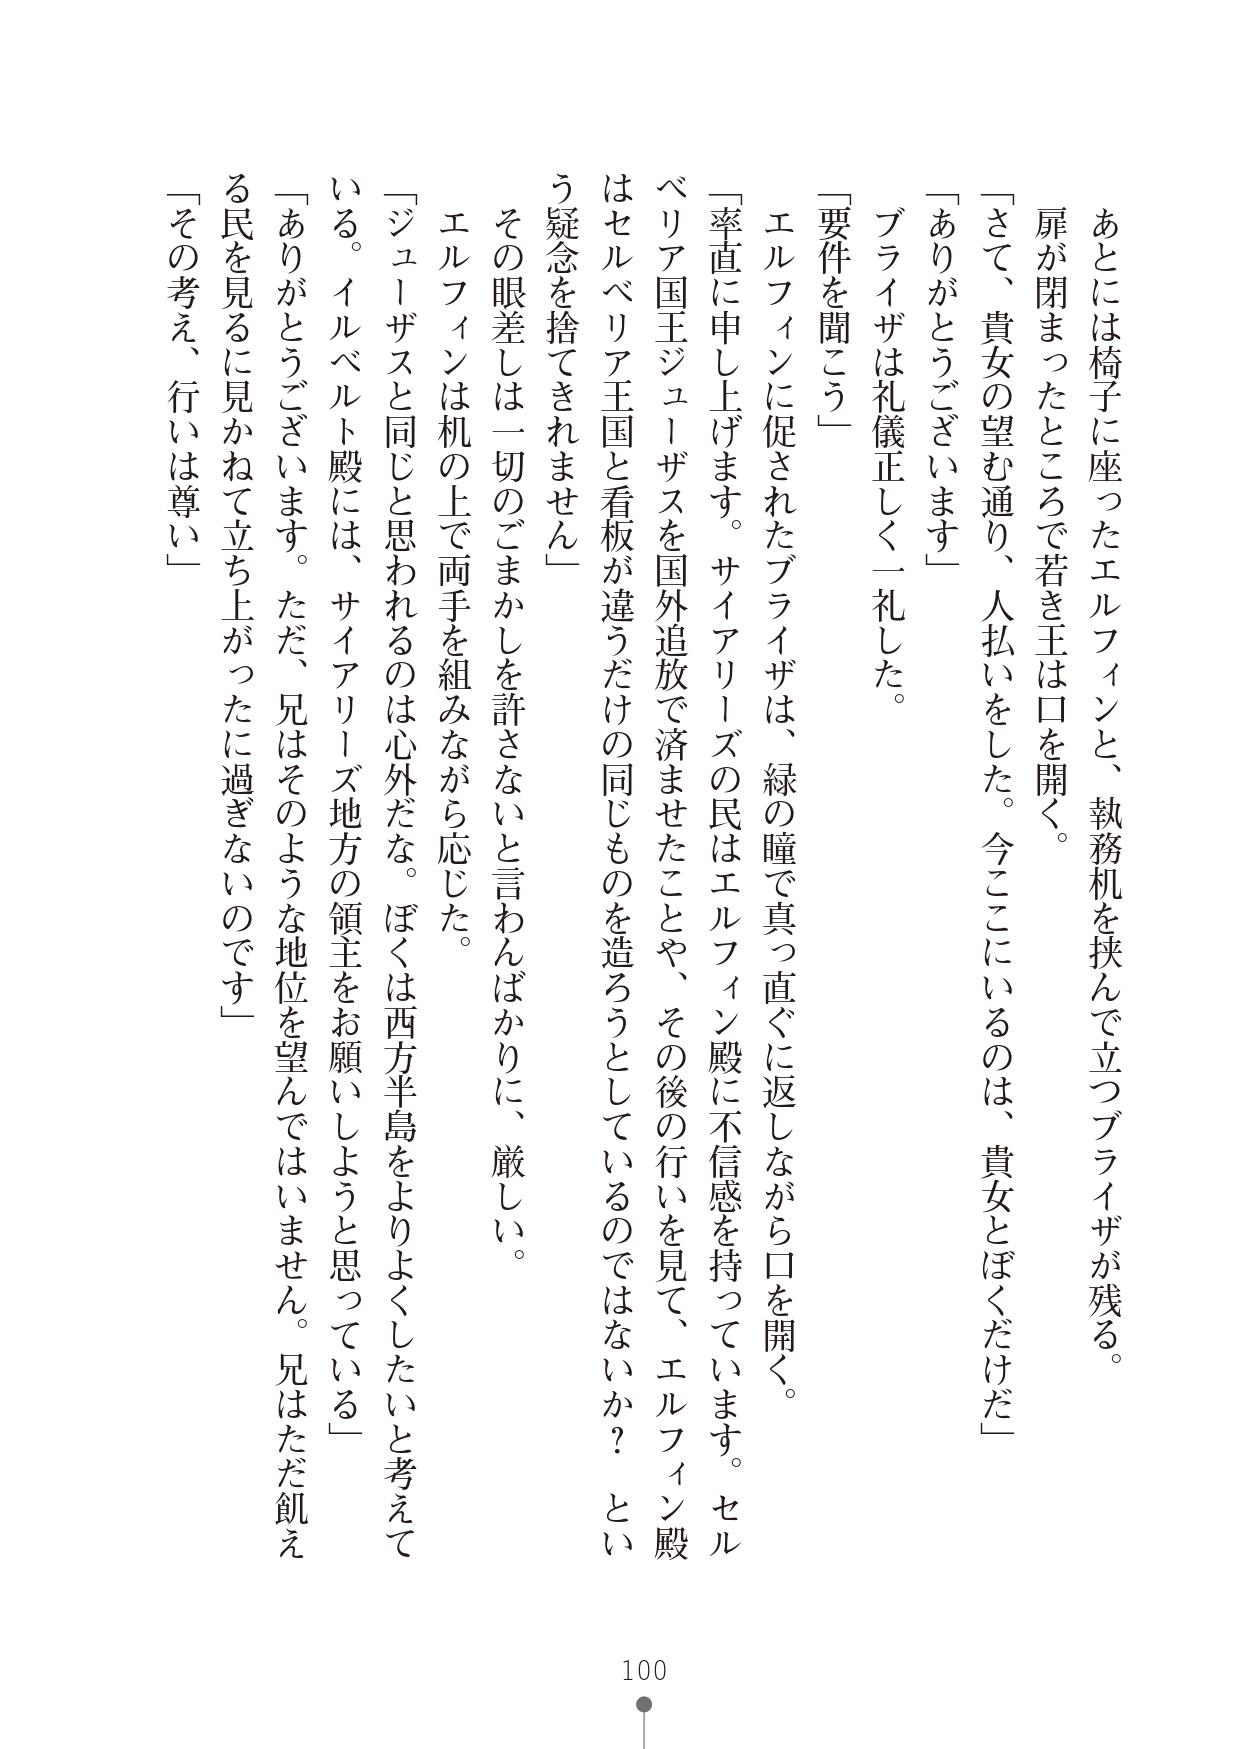 あとには椅子に座ったエルフィンと、執務机を挟んで立つブライザが残る。
　扉が閉まったところで若き王は口を開く。
「さて、貴女の望む通り、人払いをした。今ここにいるのは、貴女とぼくだけだ」
「ありがとうございます」
　ブライザは礼儀正しく一礼した。
「要件を聞こう」
　エルフィンに促されたブライザは、緑の瞳で真っ直ぐに返しながら口を開く。
「率直に申し上げます。サイアリーズの民はエルフィン殿に不信感を持っています。セル
ベリア国王ジューザスを国外追放で済ませたことや、その後の行いを見て、エルフィン殿
はセルベリア王国と看板が違うだけの同じものを造ろうとしているのではないか？　とい
う疑念を捨てきれません」
　その眼差しは一切のごまかしを許さないと言わんばかりに、厳しい。
　エルフィンは机の上で両手を組みながら応じた。
「ジューザスと同じと思われるのは心外だな。ぼくは西方半島をよりよくしたいと考えて
いる。イルベルト殿には、サイアリーズ地方の領主をお願いしようと思っている」
「ありがとうございます。ただ、兄はそのような地位を望んではいません。兄はただ飢え
る民を見るに見かねて立ち上がったに過ぎないのです」
「その考え、行いは尊い」
100